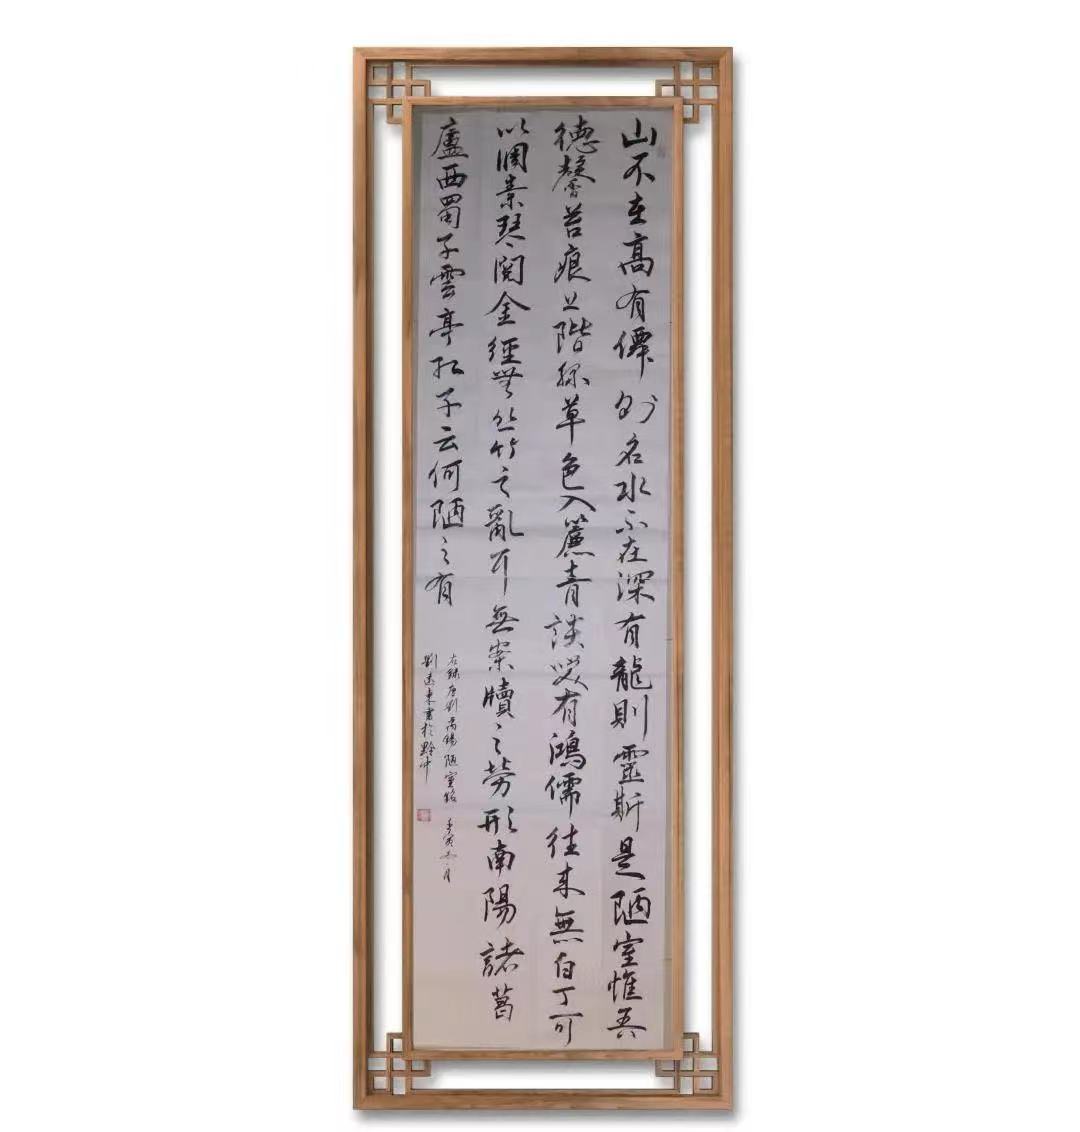 山不在高有僊則名水不在深有龍則靈斯是陋室惟吾
德馨苔痕上階綠草色入簾青談笑有鴻儒往來無白丁可
以調素琴閱金經無丝竹之亂耳無案牘之勞形南陽諸葛
廬西蜀子雲亭孔子云何陋之有
右錄唐劉禹錫陋室銘 壬寅 月
劉遠東書於黔中